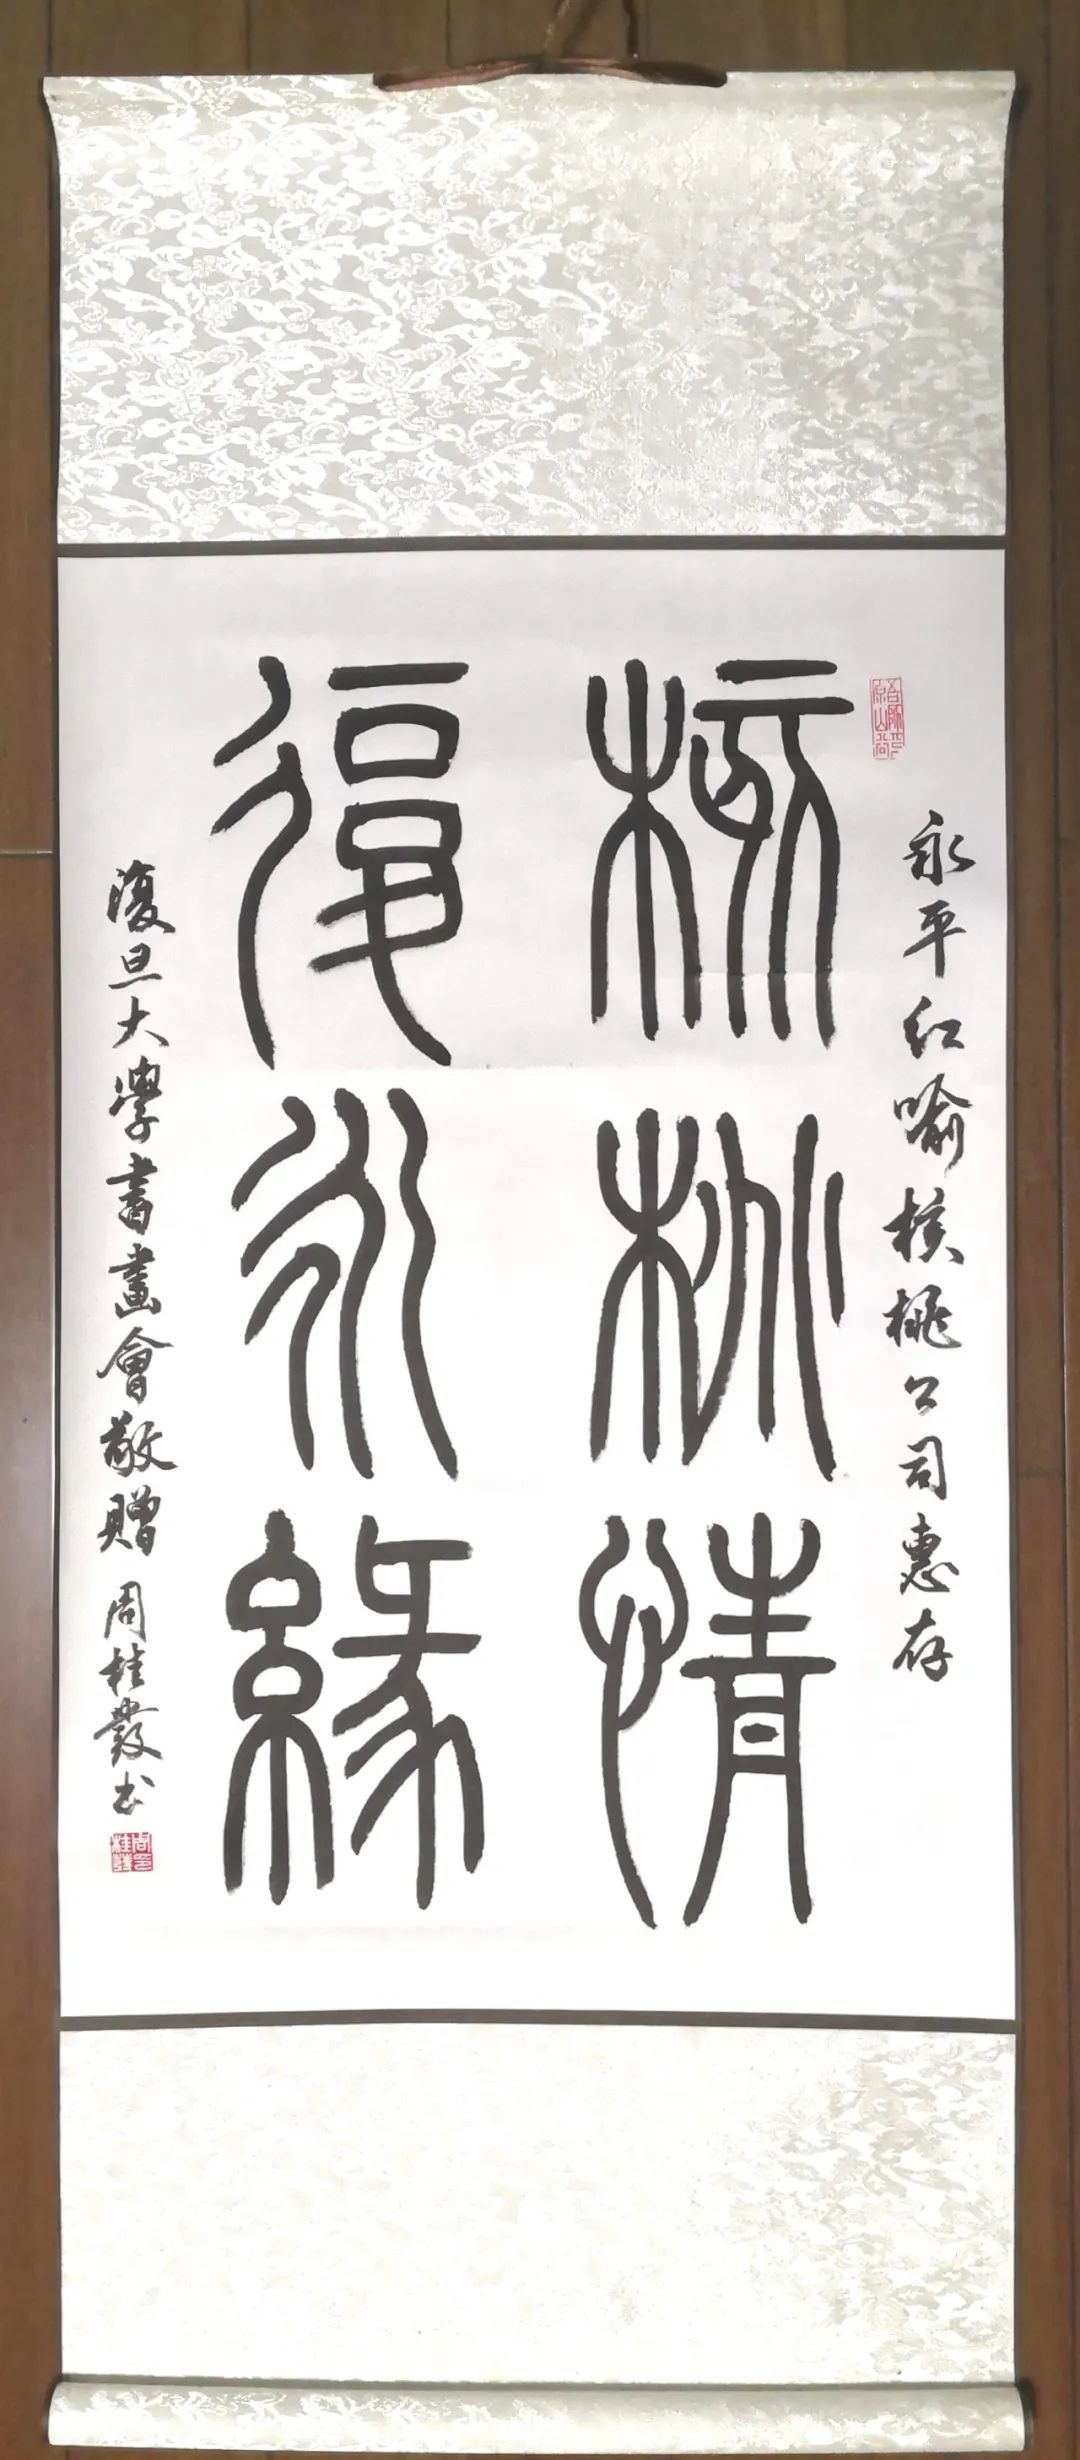 永平红喻核桃公司惠存
核桃情
復永緣
復旦大學書畫會敬贈 周桂發书